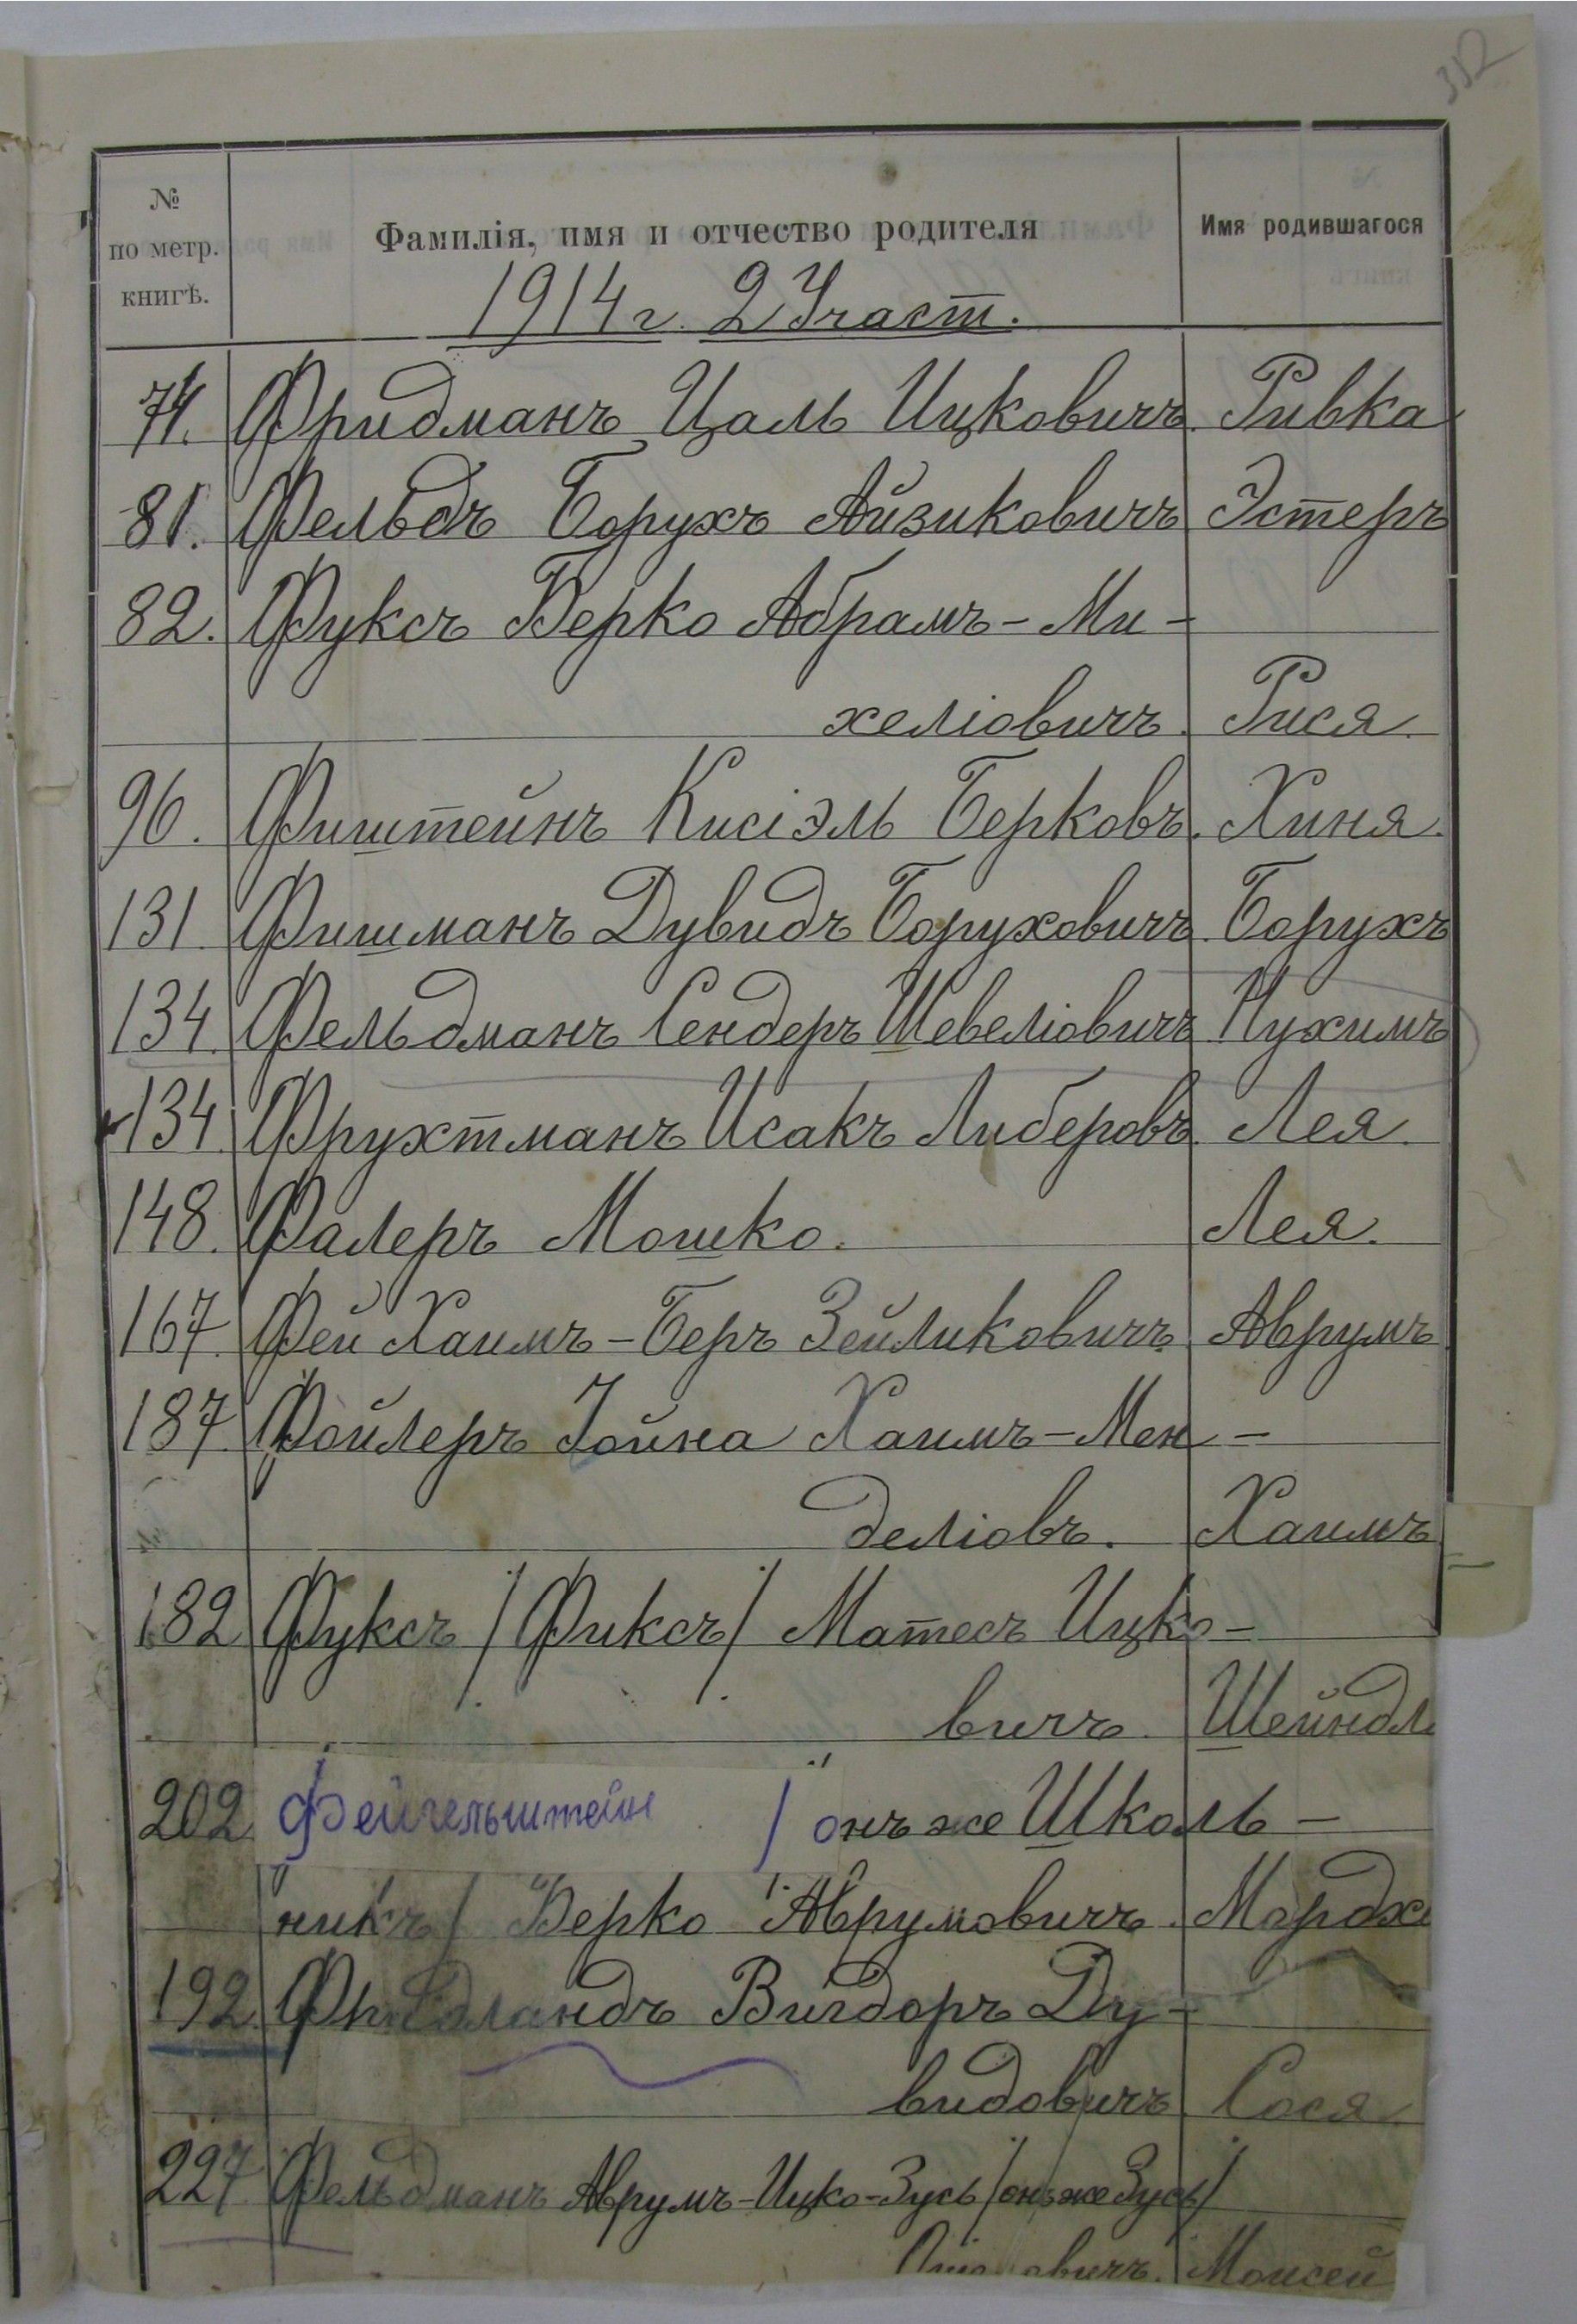 352
№ по метр. книгѣ. Фамилія, имя и отчество родителя Имя родившагося
1914 г. 2 Участ.
74. Фридманъ Цаль Ицковичъ. Ривка
81. Фельдъ Борухъ Айзиковичъ Эстеръ
82. Фуксъ Берко Абрамъ-Ми-
хеліовичъ. Рися.
96. Фиштейнъ Кисіэль Берковъ. Хиня.
131. Фишманъ Дувидъ Боруховичъ. Борухъ
134. Фельдманъ Сендеръ Шевеліовичъ Нухимъ
134. Фрухтманъ Исакъ Либеровъ. Лея.
148. Фалеръ Мошко. Лея.
167. Фей Хаимъ-Беръ Зейликовичъ Аврумъ
187. Фойлеръ Іойна Хаимъ-Мен-
деліовъ. Хаимъ
182 Фуксъ /Фиксъ/ Матесъ Ицко-
вичъ. Шейндл
202. Фейгельштейн /онъ же Школь-
никъ/ Берко Аврумовичъ. Мордх
192. Фридландъ Вигдоръ Ду-
видовичъ. Сося.
227. Фельдманъ Аврумъ-Ицко-Зусь /онъ же Зусь/
овичъ. Моисей